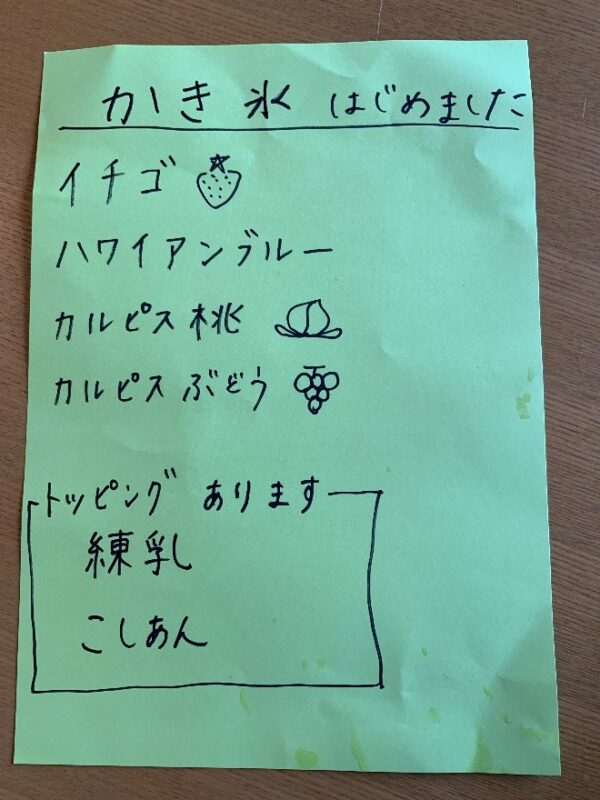 かき氷 はじめました
イチゴ
ハワイアンブルー
カルピス桃
カルピスぶどう
トッピング あります
練乳
こしあん